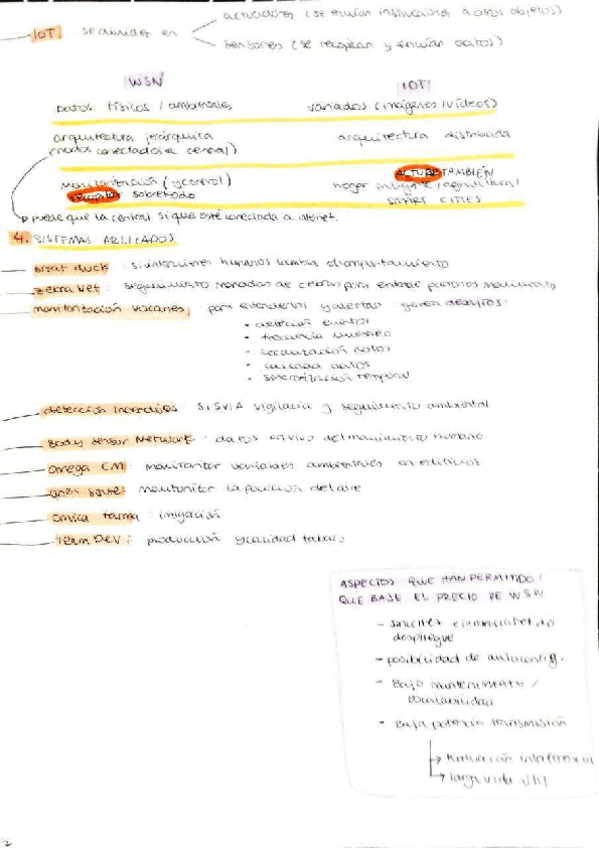 actuadores (se envían instrucciones a otros objetos)
IOT: se dividen en
sensores (se recopilan y envían datos)
WSN IOT
datos físicos / ambientales variados (imágenes / vídeos)
arquitectura jerárquica arquitectura distribuida
(nodos conectados a central)
monitorización (y control) ACTUAR TAMBIÉN
recopilar sobretodo hogar inteligente / agricultura /
SMART CITIES
puede que la central si que esté conectada a internet.
4. SISTEMAS APLICADOS
great duck: si intervienen humanos cambia el comportamiento
zebra net: seguimiento manadas de cebras para entender patrones movimiento
monitorización volcanes: para entenderlos y alertar genera desafíos:
• detección eventos
• frecuencia muestreo
• localización nodos
• calidad datos
• sincronización temporal
detección incendios: SISVIA vigilacia y seguimiento ambiental
Body Sensor Network: datos en vivo del movimiento humano
omega CM: monitorizar variables ambientales en edificios
: monitorizar la polución del aire
: irrigación
Team Dev: producción y calidad tabaco
ASPECTOS QUE HAN PERMITIDO
QUE BAJE EL PRECIO DE WSN
- del
despliegue
- posibilidad de autoconfig.
- Bajo mantenimiento /
escalabilidad
- Baja potencia transmisión
→ interferencia
→ larga vida útil
2